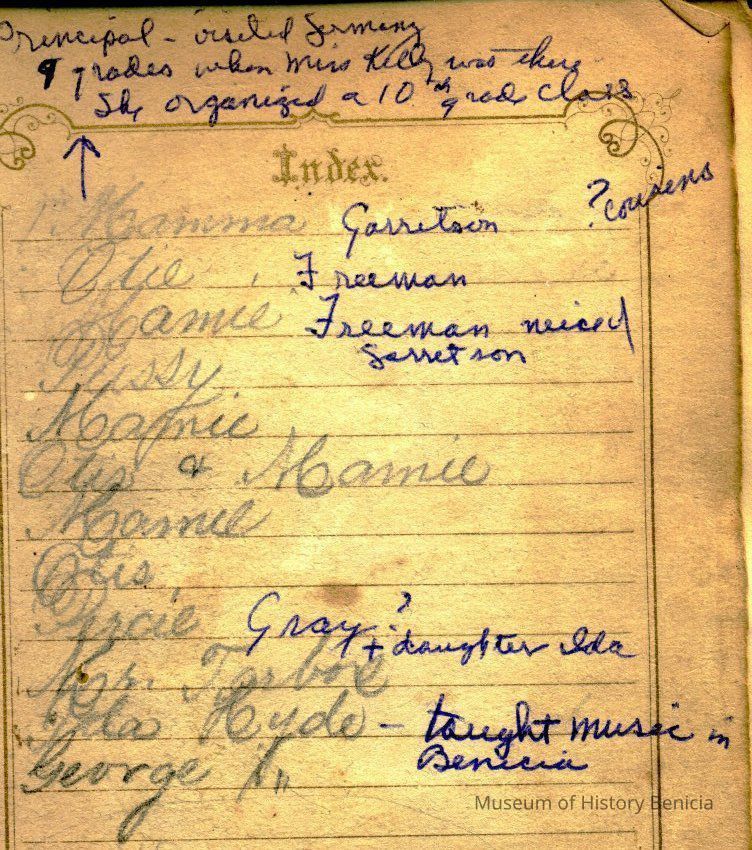 Principal - visited Germany
9 grades when Miss Kelly was there
She organized a 10th grade class
Index.
? cousins
1. Mamma Garretson
Otie Freeman
Mamie Freeman neice
Garretson
Pussy
Mamie
Otis & Mamie
Mamie
Otis
Gray ?
+ daughter Ida
Mrs. Tarbox
Ida Hyde - taught music in
Benicia
George "
Museum of History Benicia